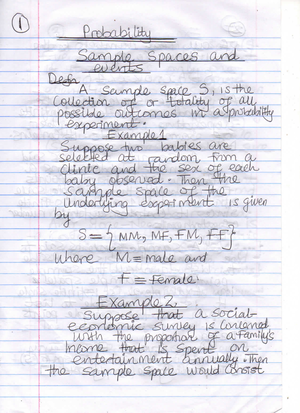 1
Probability
Sample Spaces and
events
Defn
A sample space S, is the
Collection of or totality of all
possible outcomes in a probability
experiment.
Example 1
Suppose two babies are
selected at random from a
clinic and the sex of each
baby observed. Then the
sample space of the
underlying experiment is given
by
S = {MM, MF, FM, FF}
where M ≡ male and
F ≡ Female
Example 2.
Suppose that a social-
economic survey is concerned
with the proportion of a family's
income that is spent on
entertainment annually. Then
the sample space would consist